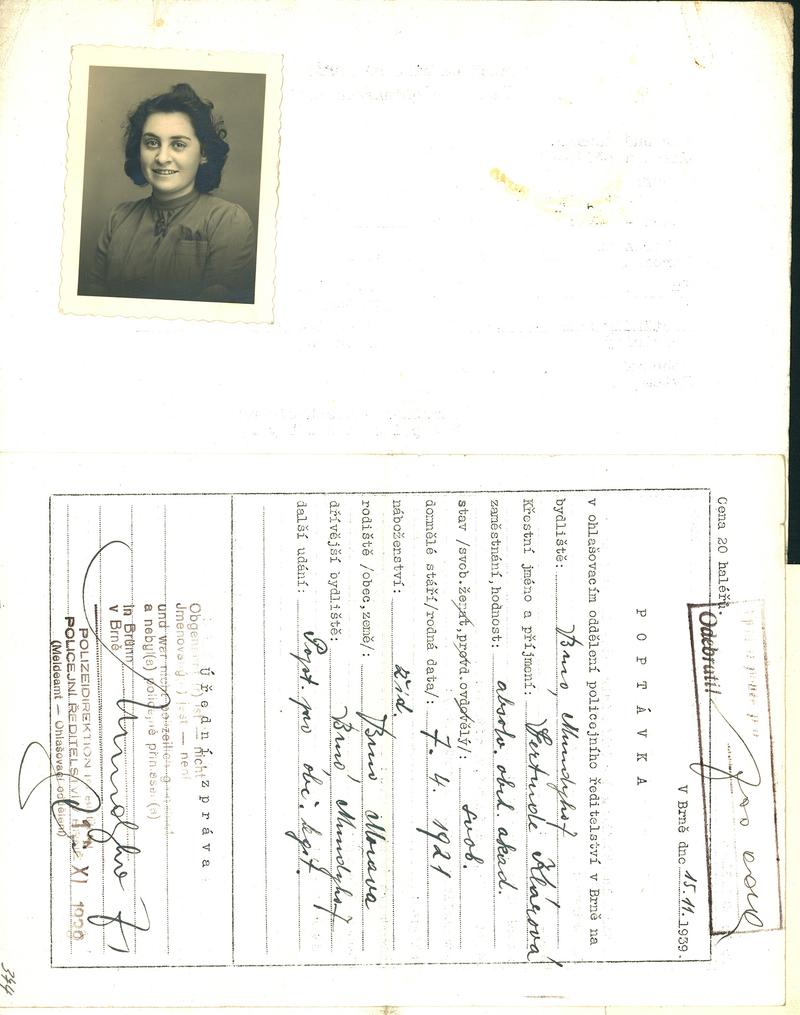 Cena 20 haléřů.
Odebrati!
V Brně dne 15.11.1939.
P O P T Á V K A
v ohlašovacím oddělení policejního ředitelství v Brně na
bydliště: Brno, Mundyho 7
Křestní jméno a příjmení: Gertrude Klárová
zaměstnání,hodnost: absolv. obch. akad.
stav /svob.ženat,provd.ovdovělý/: svob.
domnělé stáří/rodná data/: 7. 4. 1921
náboženství: žid.
rodiště /obec,země/: Brno Morava
dřívější bydliště: Brno, Mundyho 7
další udání: Popt. pro obč. legit.
Ú ř e d n í z p r á v a :
ist — nicht
Jmenova ist — není
und war nicht
a nebyl(a)
in Brünn Mundyho 7
v Brně
POLIZEIDIREKTION
POLICEJNÍ ŘEDITELSTVÍ
XI.
(Meldeamt — Ohlašovací oddělení)
344